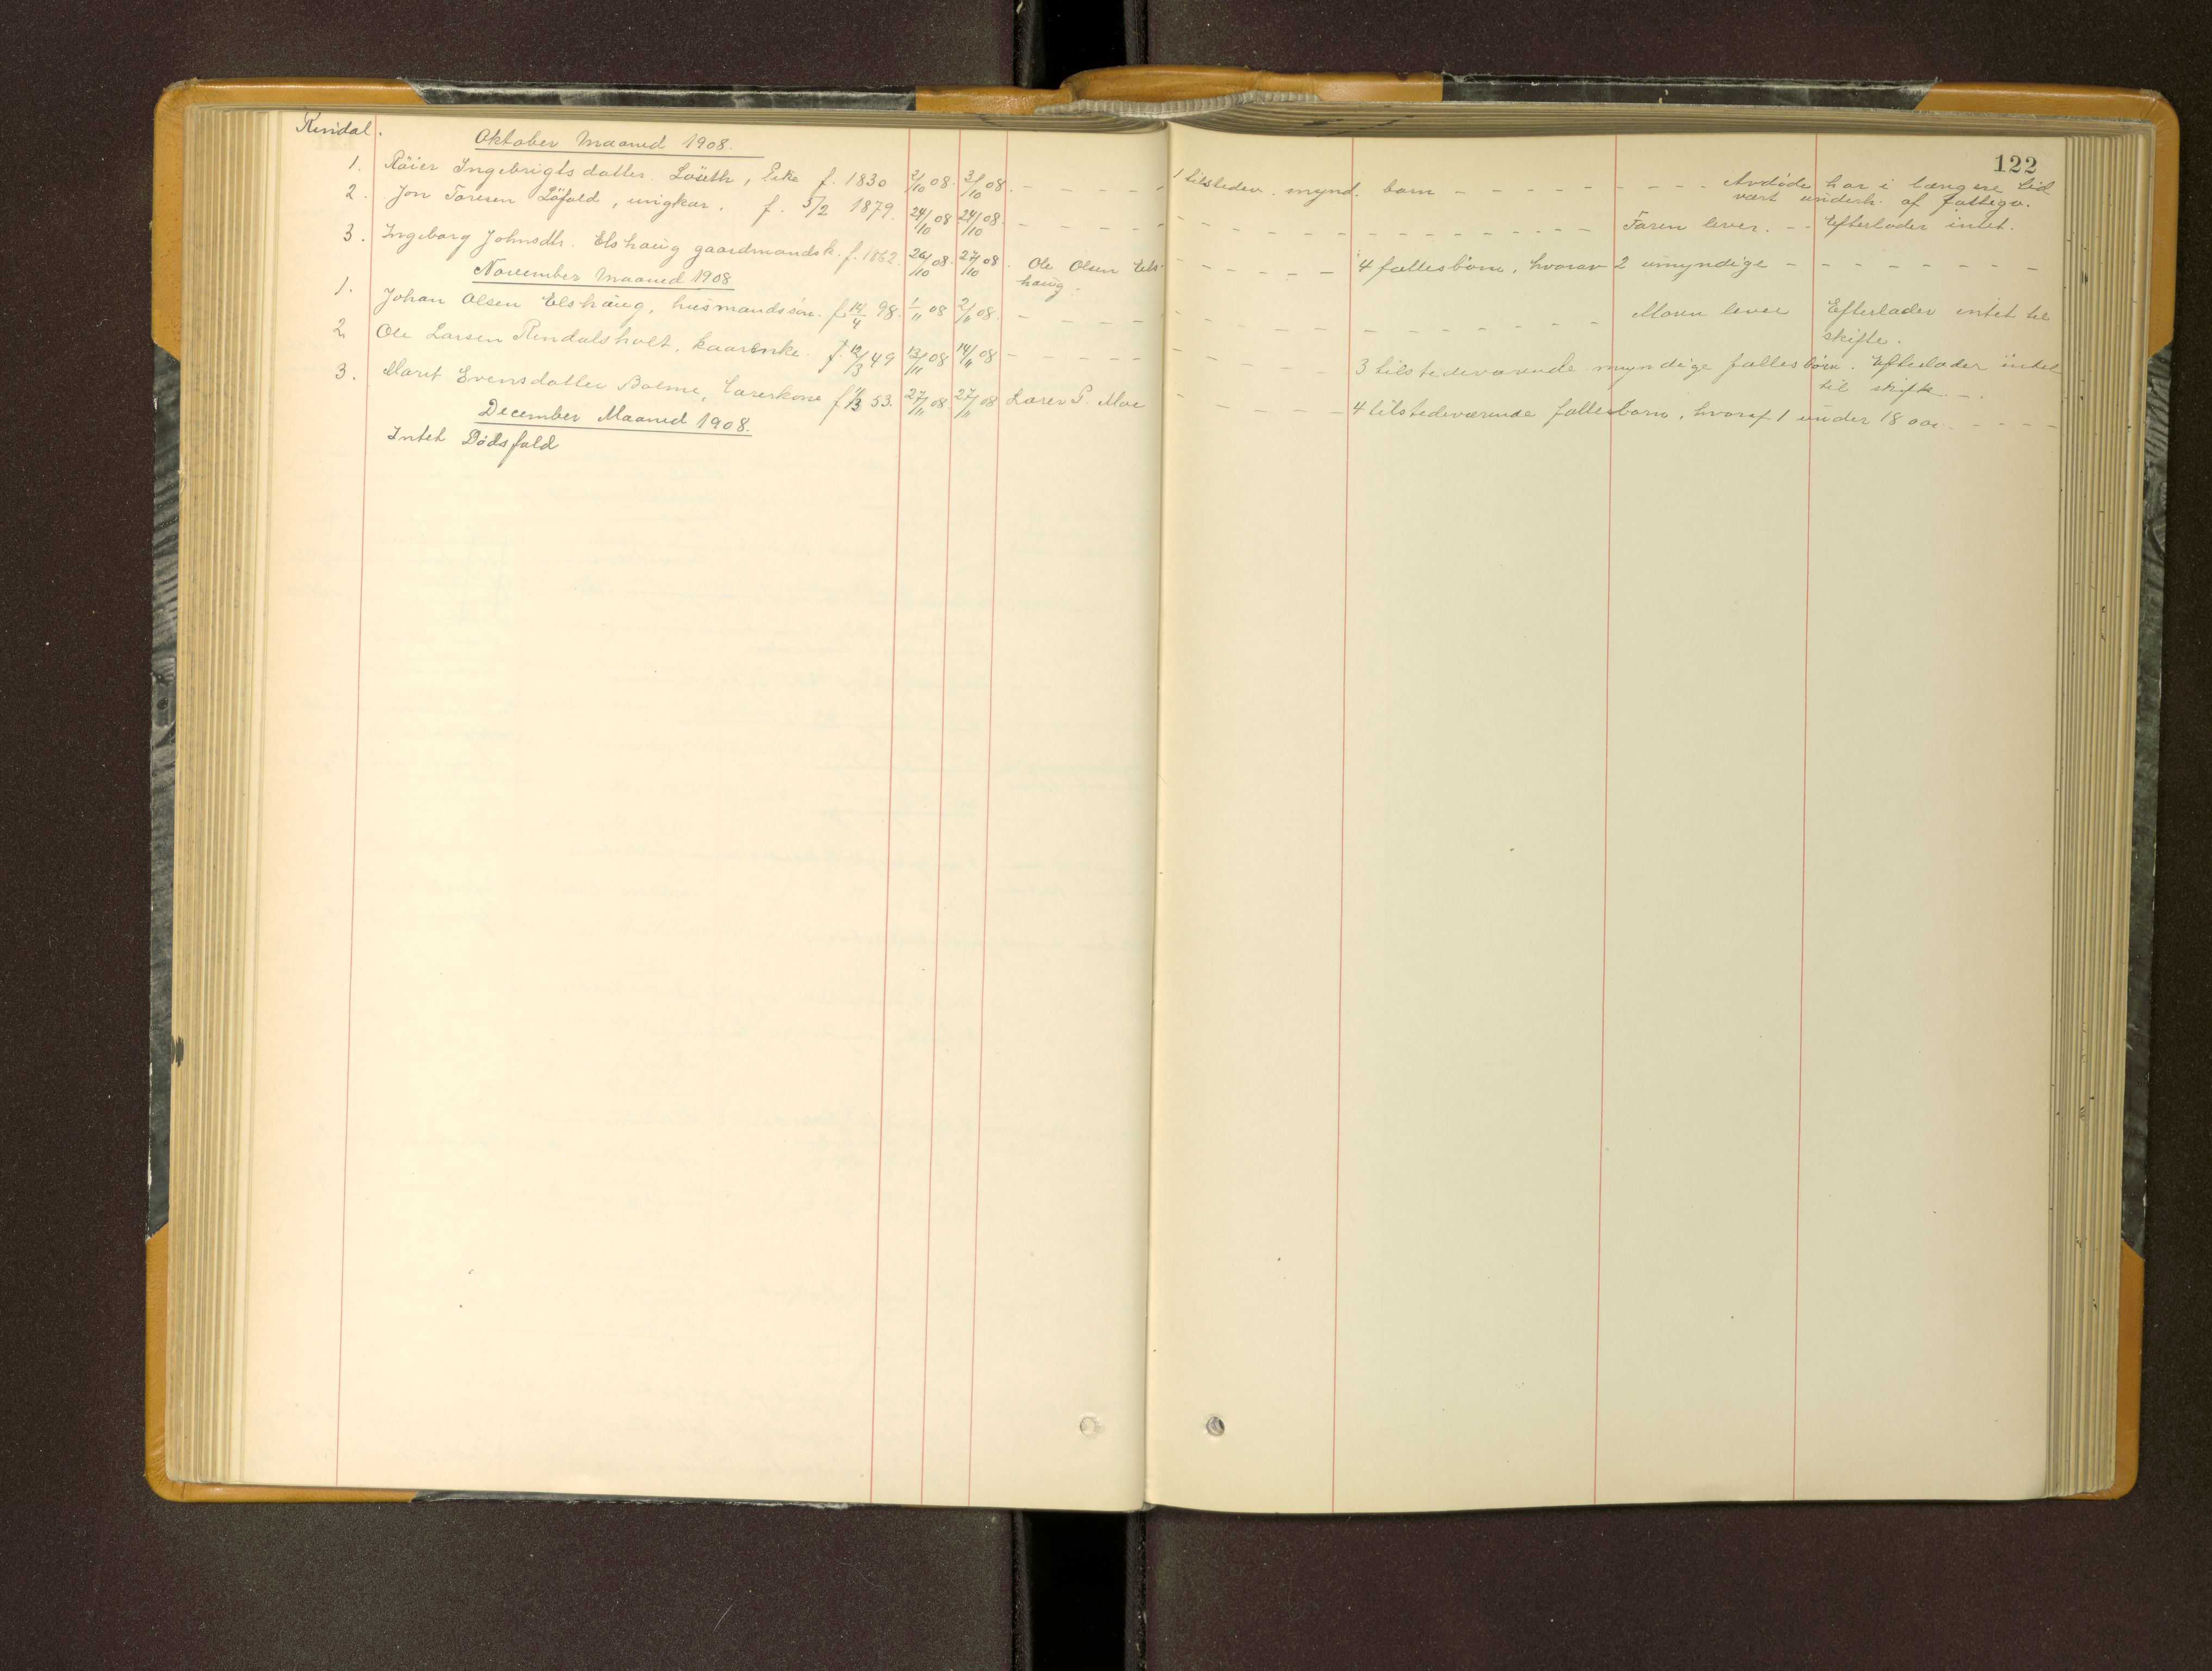 122
Rindal.
Oktober Maaned 1908.
1. Röier Ingebrigtsdatter Löseth, Enke f. 1830 2/10 08. 3/10 08. - - - - - 1 tilstedev. mynd. barn - - - - - - - - - Avdöde har i længere tid
vært underh. af fattigv.
2. Jon Toresen Löfald, ungkar. f. 5/2 1879. 24/10 08 24/10 08 - - - - - - - - - - - - Faren lever. - - Efterlader intet.
3. Ingeborg Johnsdtr. Elshaug gaardmandsk. f. 1862. 26/10 08. 27/10 08. Ole Olsen Els- - - - - - 4 fællesbörn, hvorav 2 umyndige - - - - - - - -
haug.
November Maaned 1908
1. Johan Olsen Elshaug, husmandssön. f. 14/4 98. 1/11 08 2/11 08. - - - - - - - - - - - - Moren lever Efterlader intet til
skifte.
2. Ole Larsen Rindalsholt, kaarenke. f. 12/3 49 13/11 08 14/11 08 - - - - - - - - - 3 tilstedeværende myndige fællesbörn. Efterlader intet
til skifte. -.
3. Marit Evensdatter Bolme, Lærerkone f. 11/3 53. 27/11 08. 27/11 08 Lærer P. Moe - - - - - 4 tilstedeværende fællesbarn, hvoraf 1 under 18 aar. - - - -
December Maaned 1908.
Intet Dödsfald